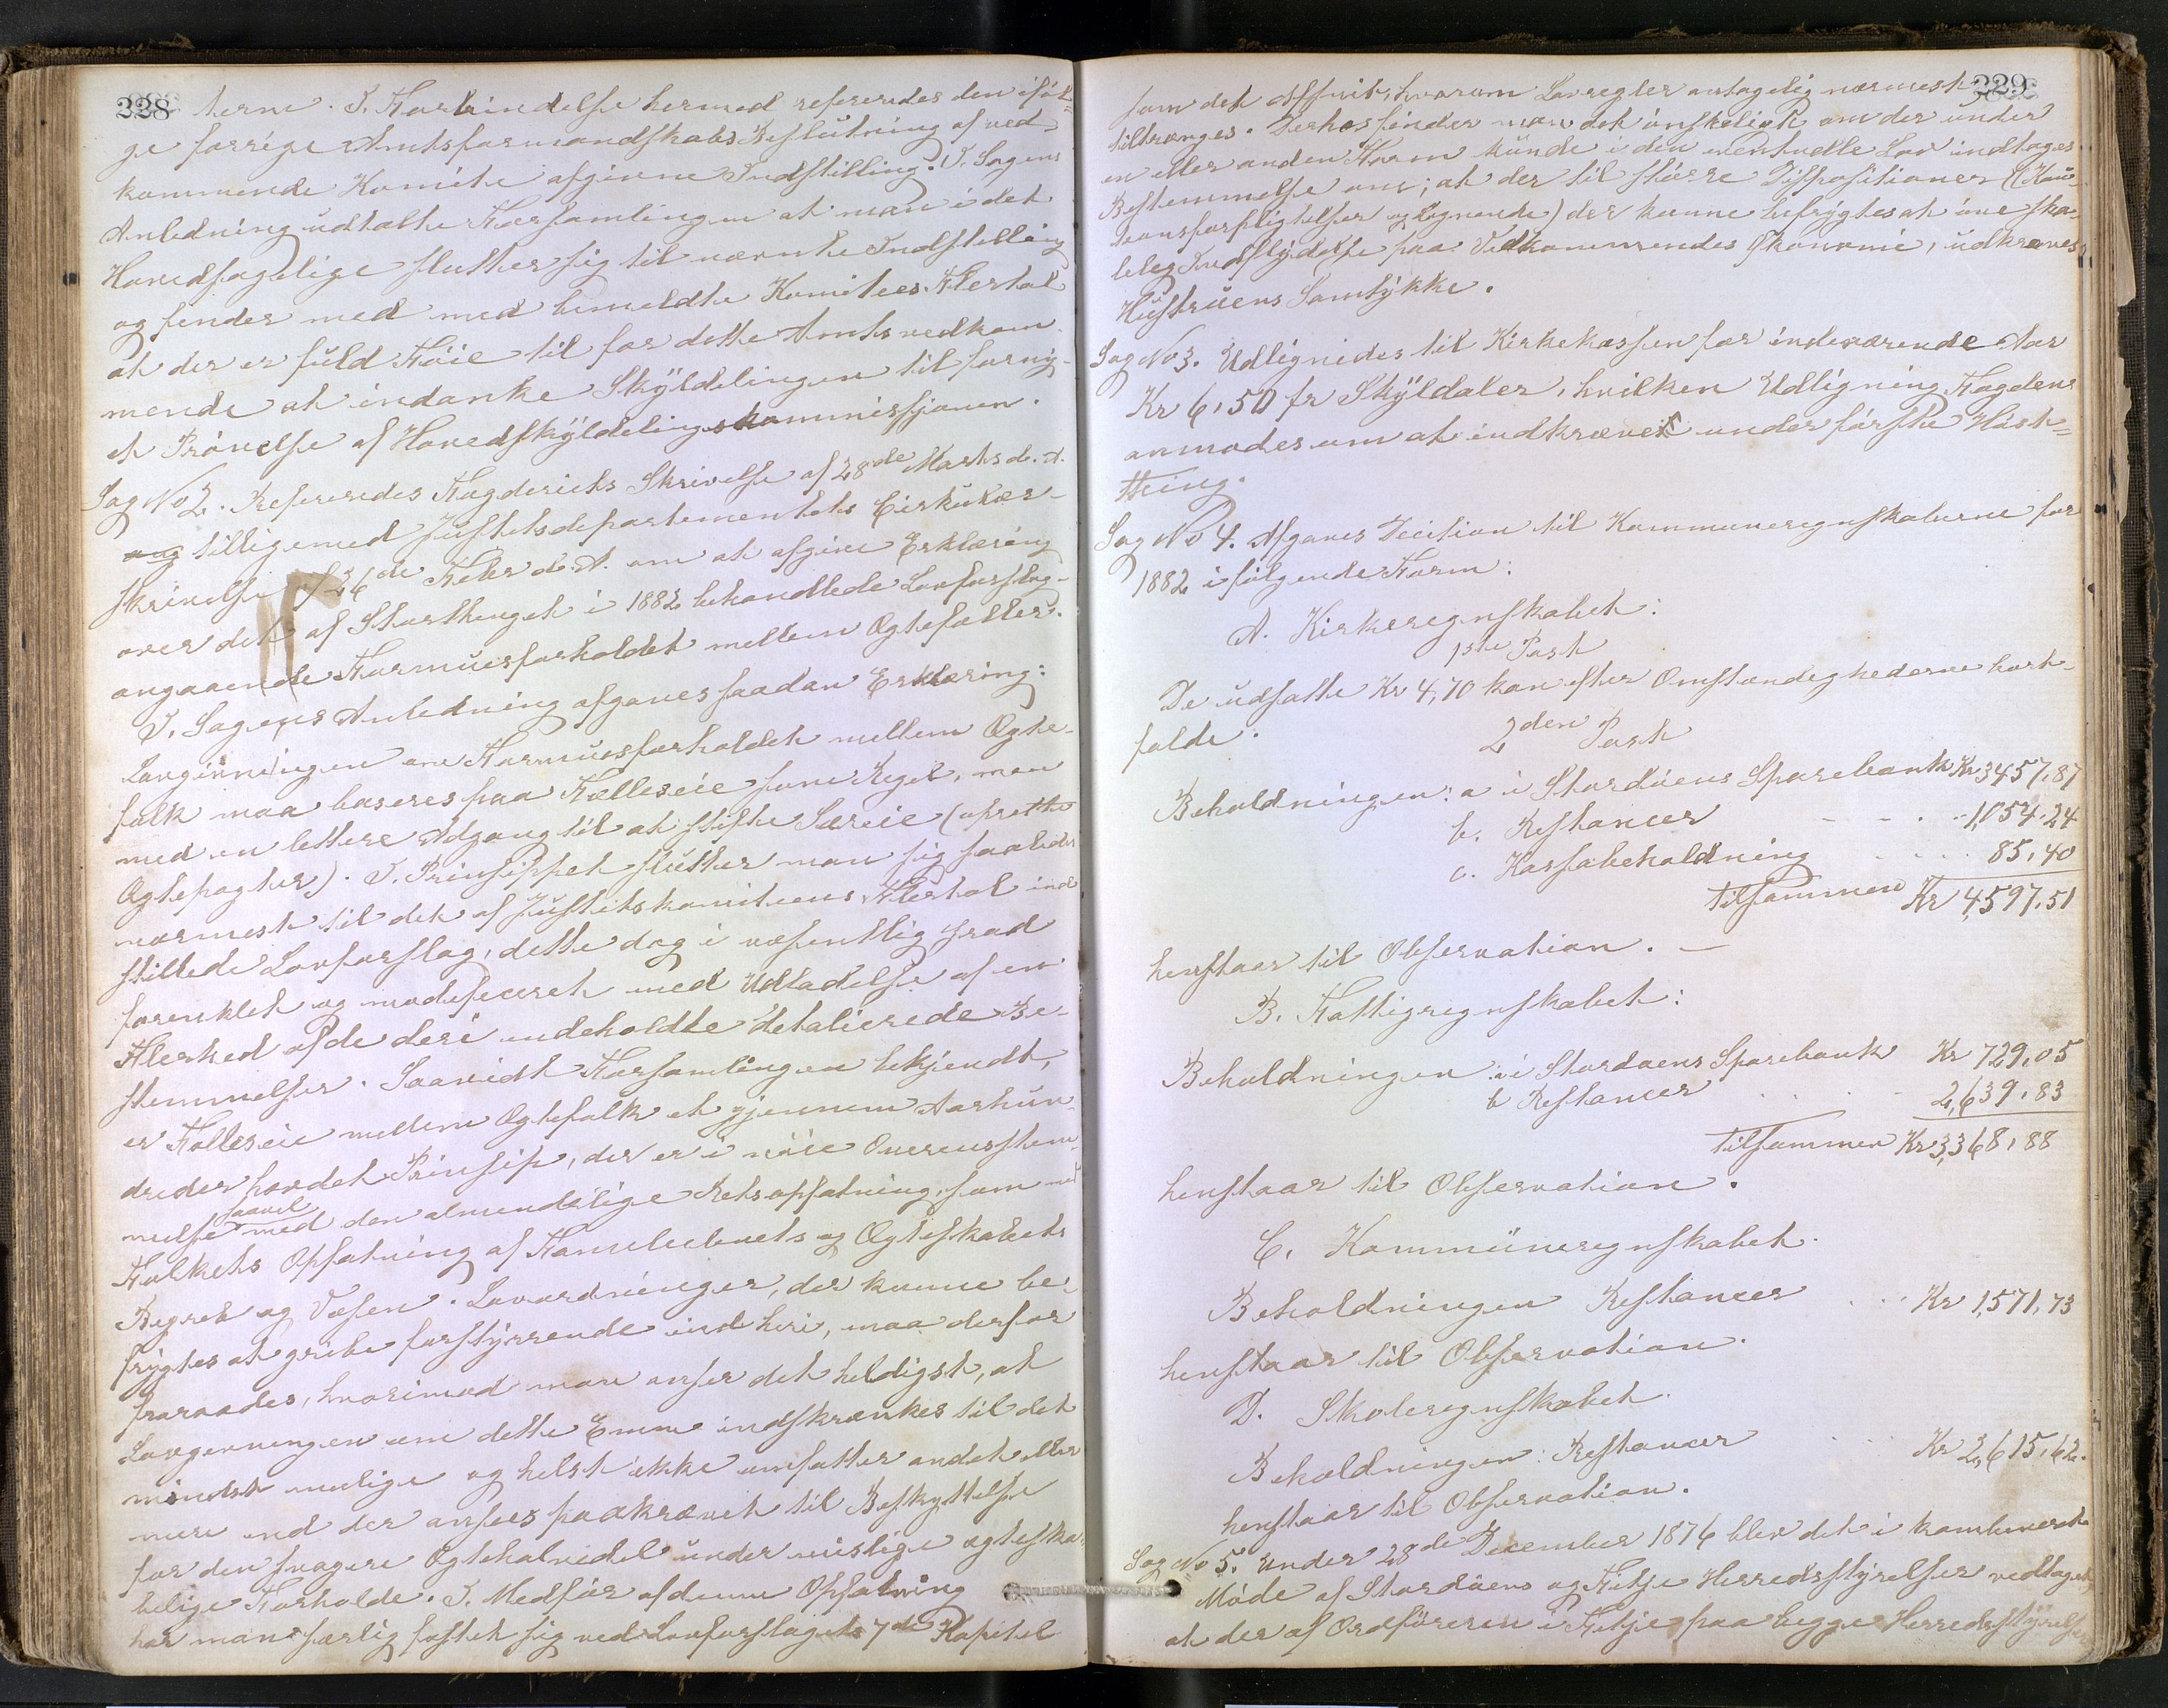 228
terne. I Forbindelse hermed refereredes den iføl=
ge forrige Amtsformandskabs Beslutning af ved-
kommende Komite afgivne Indstilling. I Sagens
Anledning udtalte Forsamlingen at man i det
Hovedsagelige slutter sig til nævnte Indstilling
og finder med med bemeldte Komitees Flertal
at der er fuld Föie til for dette Amts vedkom-
mende at indanke Skyldelingen til forny-
et Prövelse af Hovedskyldelingskommissjonen.
Sag No 2. Refereredes Fogderiets Skrivelse af 28de Marts d. A.
tilligemed Justitsdepartementets Cirkulær-
skrivelse af 26de Febr d. A. om at afgive Erklæring
over det af Storthinget i 1882 behandlede Lovforslag
angaaende Formuesforholdet mellem Ægtefæller.
I Sagens Anledning afgaves saadan Erklæring:
Lovgivningen om Formuesforholdet mellem Ægte-
folk maa baseres paa Fælleseie som Regel, men
med en lettere Adgang til at stifte Særeie (oprette
Ægtepagter). I Prinsippet slutter man sig saaledes
nærmest til det af Justitskomiteens Flertal ind-
stillede Lovforslag, dette dog i væsentlig Grad
forenklet og modificeret med Udladelse af en
Flerhed af de deri indeholdte detalierede Be-
stemmelser. Saavidt Forsamlingen bekjendt,
er Fælleseie mellem Ægtefolk et gjennem Aarhun-
dreder hævdet Prinsip, der er i nöie Overensstem-
melse saavel med den almindelige Retsopfatning som med
Folkets Opfatning af Familielivets og Ægteskabets
Begreb og Væsen. Lovordninger, der kunne be-
frygtes at gribe forstyrrende ind heri, maa derfor
fraraades, hvorimod man anser det heldigst, at
Lovgivningen om dette Emne indskrænkes til det
mindst mulige og helst ikke omfatter andet eller
mere end der ansees paakrævet til Beskyttelse
for den svagere Ægtehalvedel under uislige ægteska-
belige Forholde. I Medför af denne Opfatning
har man særlig fæstet sig ved Lovforslagets 7de Kapitel
229
som det Afsnit, hvorom Lovregler antagelig nærmest
tiltrænges. Derhos finder man det önskeligt om der under
en eller anden Form kunde i den eventuelle Lov indtages
Bestemmelse om; at der til större Dispositioner (Kau-
tionsforpligtelser og lignende) der kunne befrygtes at öve ska-
delig Indflydelse paa Vedkommendes Ökonomi, udkræves
Hustruens Samtykke.
Sag No 3. Udlignedes til Kirkekassen for indeværende Aar
Kr 6,50 pr Skyldaler, hvilken Udligning Fogden
anmodes om at indkrævet under förste Höst-
thing.
Sag No 4. Afgaves Decition til Kommuneregnskaberne for
1882 i følgende Form:
A. Kirkeregnskabet:
1ste Post
De udsatte Kr 4,70 kan efter Omstændighederne bort-
falde.
2den Post
Beholdningen: a i Stordöens Sparebank Kr 3457,87
b. Restancer - - - 1,054.24
c. Kassabeholdning . . . . 85,40
Tilsammen Kr 4,597,51
henstaar til Observation. -
B. Fattigregnskabet:
Beholdningen a i Stordöens Sparebank Kr 729,05
b Restancer . . . . 2,639,83
Tilsammen Kr 3,368,88
henstaar til Observation.
C. Kommüneregnskabet.
Beholdningen Restancer . . . Kr 1,571,73
henstaar til Observation.
D. Skoleregnskabet.
Beholdningen: Restancer . . . Kr 2,615,62.
henstaar til Observation.
Sag No 5. Under 28de December 1876 blev det i kombineret
Möde af Stordöens og Fitje Herredsstyrelser vedtaget,
at der af Ordföreren i Fitje paa begge Herredsstyrelser